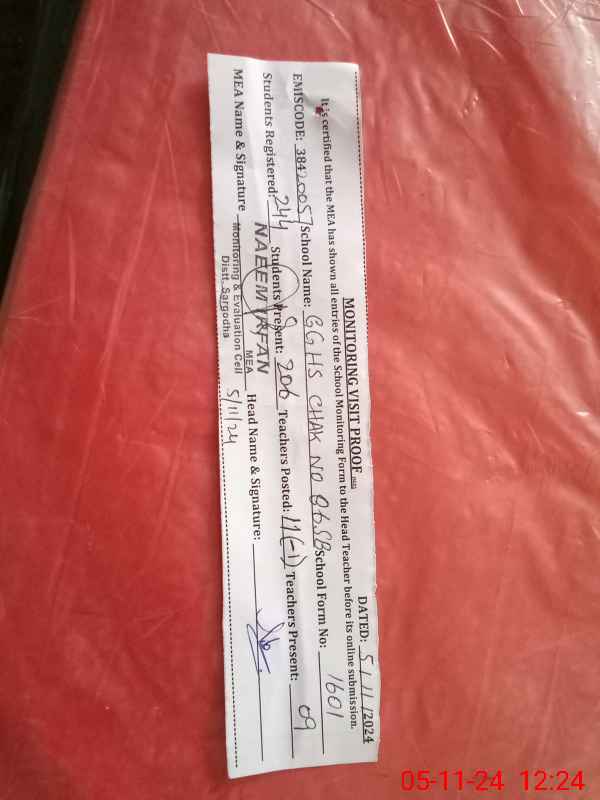 MONITORING VISIT PROOF
DATED: 5/11/2024
It is certified that the MEA has shown all entries of the School Monitoring Form to the Head Teacher before its online submission.
EMISCODE: 38420057 School Name: GGHS CHAK NO 86.SB School Form No: 1601
Students Registered: 244 Students Present: 206 Teachers Posted: 11(-1) Teachers Present: 09
MEA Name & Signature Head Name & Signature:
NAEEM IRFAN
MEA
Monitoring & Evaluation Cell
Distt. Sargodha
5/11/24
05-11-24 12:24